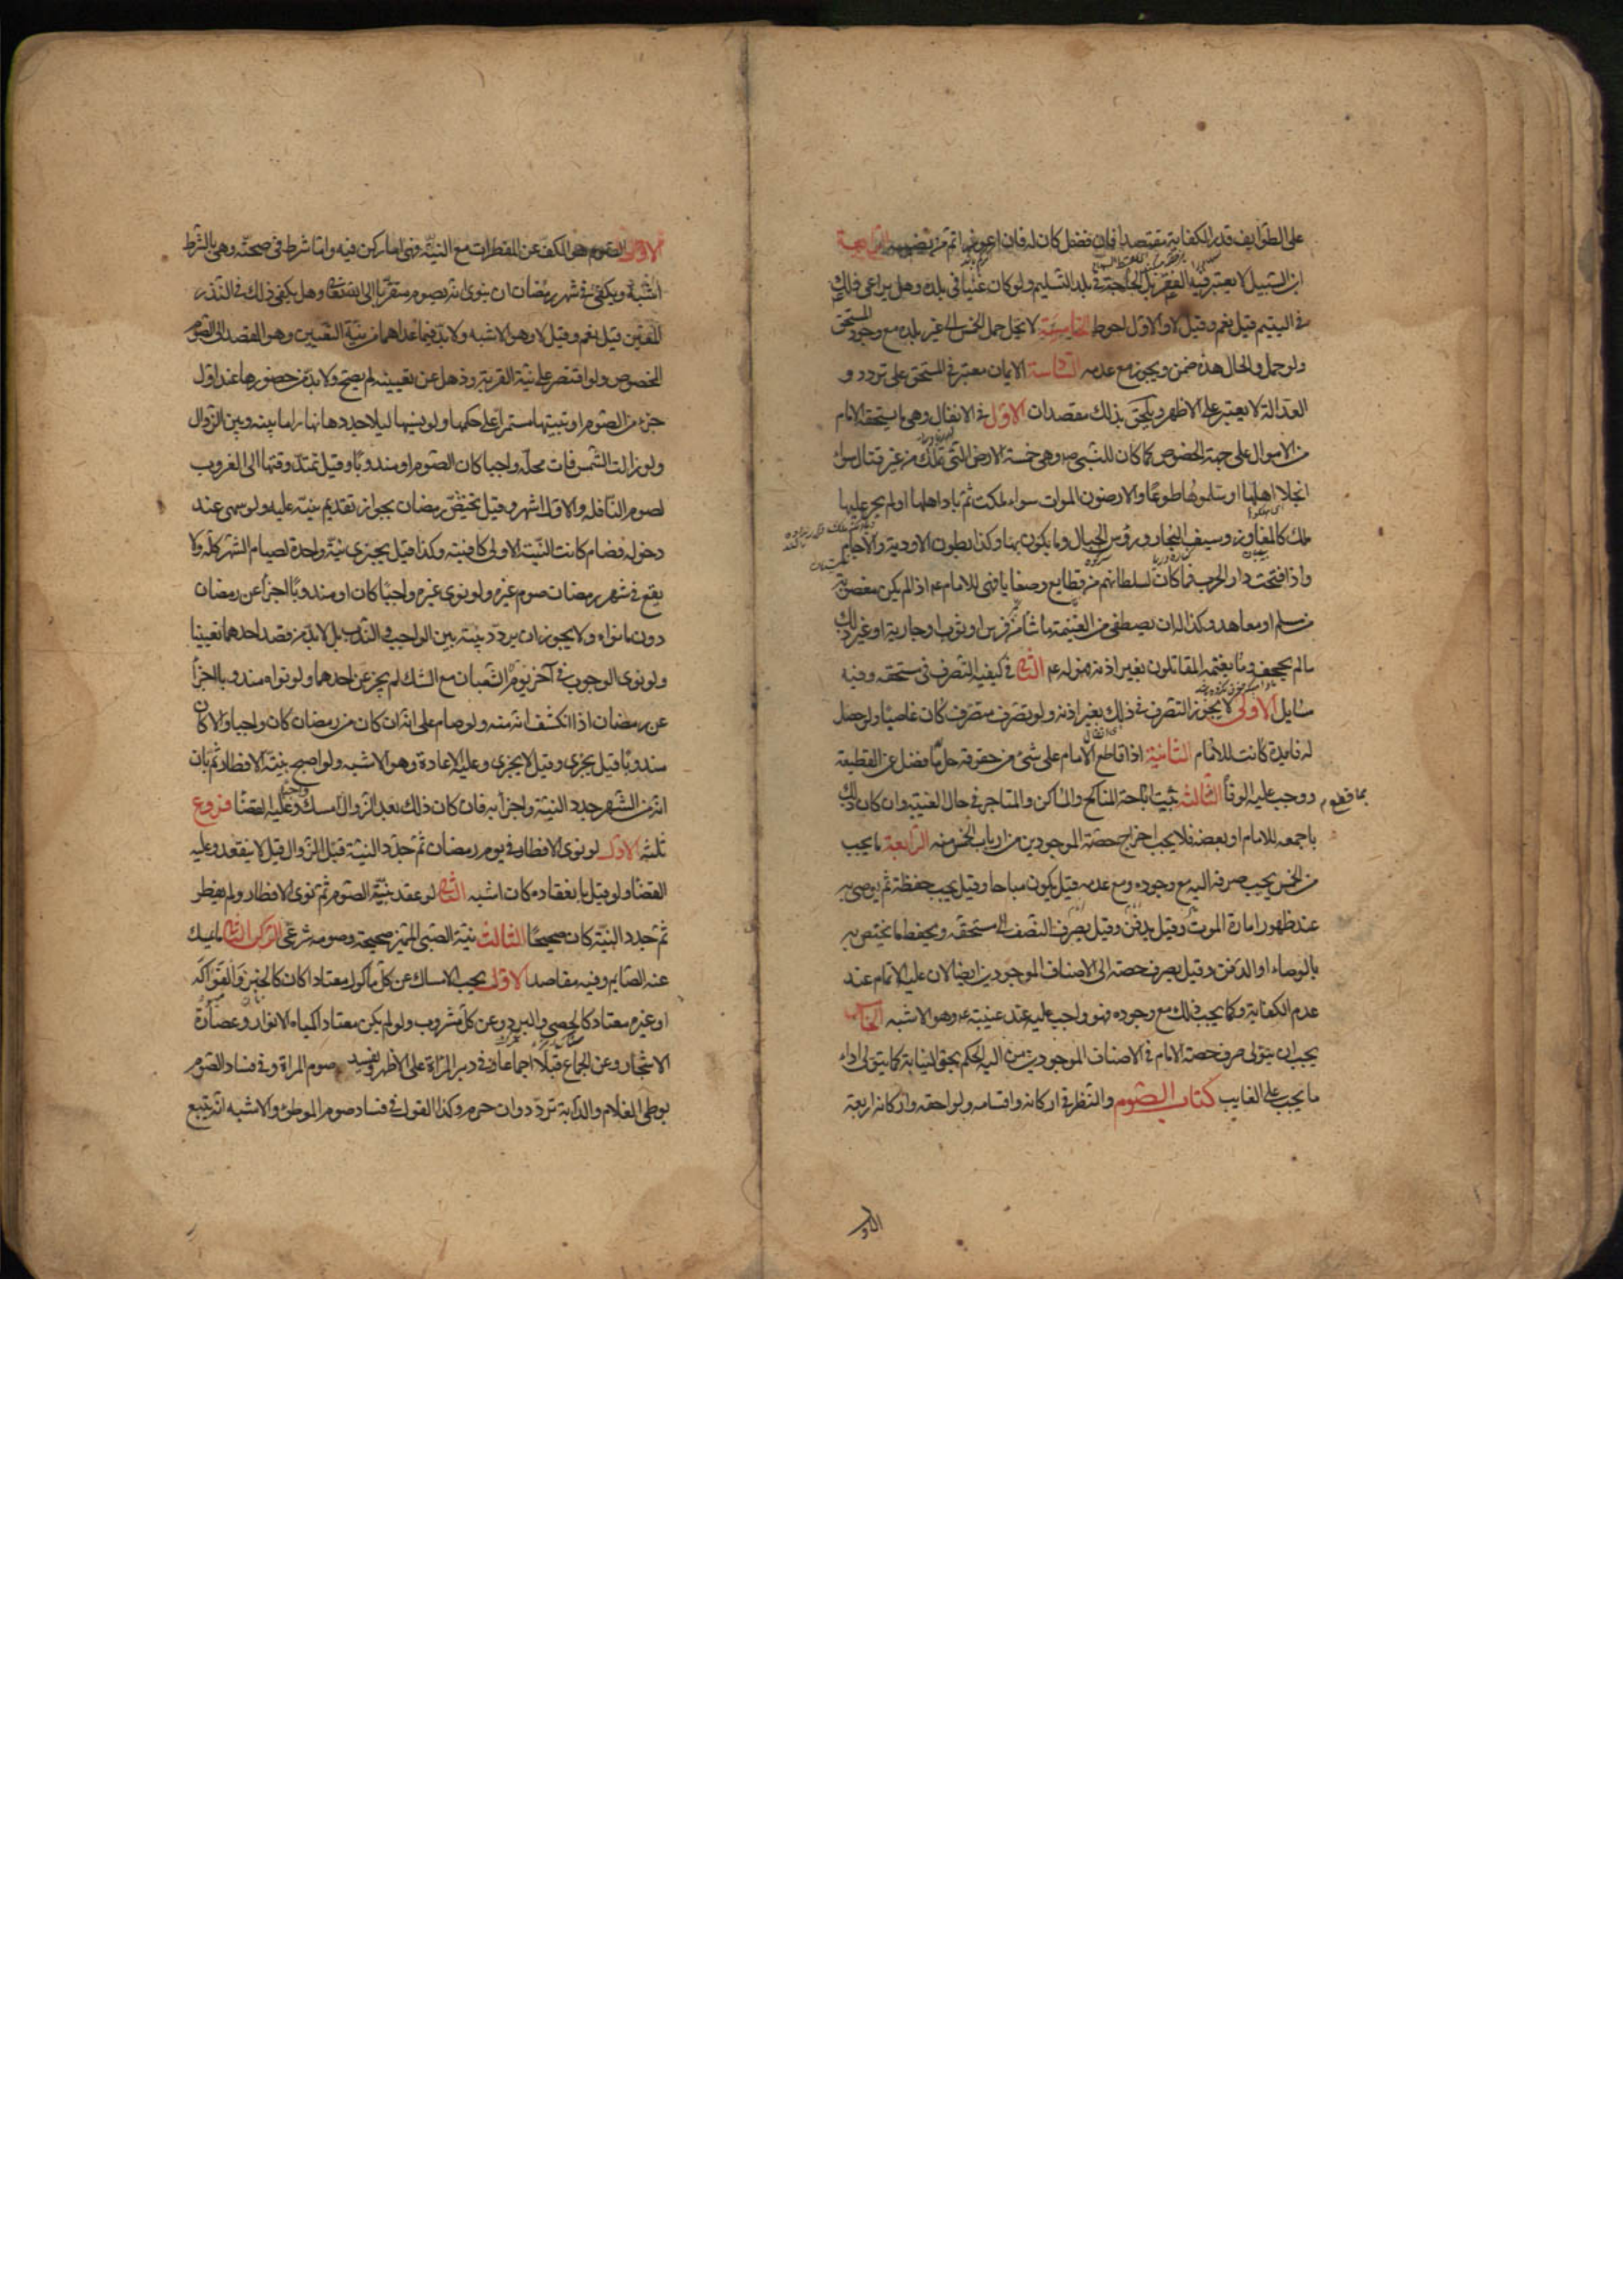 على الطوايف قدر الكفاية مقتصدا فان فضل كان له فان اعوز اتم من نصيبه الرابعة
ابن السبيل لا يعتبر فيه الفقر بل الحاجة في بلد التسليم ولو كان غنيا في بلده وهل يراعى ذلك
في اليتيم قيل نعم وقيل لا والاول احوط الخامسة لا يحل حمل الخمس الى غير بلده مع وجود المستحق
ولو حمل والحال هذه ضمن ويجوز مع عدمه السادسة الايمان معتبر في المستحق على تردد و
العدالة لا يعتبر على الاظهر ويلحق بذلك مقصدان الاول في الانفال وهي ما يستحقه الامام
من الاموال على جهة الخصوص كما كان للنبي ص وهي خمسة الارض التي تملك من غير قتال سواء
انجلا اهلها او سلموها طوعا والارضون الموات سواء ملكت ثم باد اهلها اولم يجر عليها
ملك كالمفاوز وسيف البحار ورؤس الجبال وما يكون بها وكذا بطون الاودية والآجام
واذا فتحت دار الحرب فما كان لسلطانهم من قطايع وصفايا فهي للامام ع اذا لم يكن مغصوبة
من مسلم او معاهد وكذا له ان يصطفى من الغنيمة ما شاء من فرس او ثوب او جارية او غير ذلك
مالم يجحف وما يغنمه المقاتلون بغير اذنه فهو له ع الثاني في كيفية التصرف في مستحقه وفيه
مسايل الاولى لا يجوز التصرف في ذلك بغير اذنه ولو تصرف متصرف كان غاصبا ولو حصل
له فايدة كانت للامام الثانية اذا قاطع الامام على شيء من حقوقه حل ما فضل عن القطيعة
ووجب عليه الوفا الثالثة ثبت اباحة المناكح والمساكن والمتاجر في حال الغيبة وان كان ذلك
باجمعه للامام او بعضه فلا يجب اخراج حصة الموجودين من ارباب الخمس منه الرابعة ما يجب
من الخمس يجب صرفه اليه مع وجوده ومع عدمه قيل يكون مباحا وقيل يجب حفظه ثم يوصى به
عند ظهور امارة الموت وقيل يدفن وقيل يصرف النصف الى مستحقه ويحفظ ما يختص به
بالوصاء او الدفن وقيل يصرف حصته الى الاصناف الموجودين ايضا لان عليه الاتمام عند
عدم الكفاية وكما يجب ذلك مع وجوده فهو واجب عليه عند غيبته ع وهو الاشبه الخامسة
يجب ان يتولى صرف حصة الامام في الاصناف الموجودين من اليه الحكم بحق النيابة كما يتولى اداء
ما يجب على الغايب كتاب الصوم والنظر في اركانه واقسامه ولواحقه واركانه اربعة
الاول
الاول الصوم هو الكف عن المفطرات مع النية وهي اما ركن فيه واما شرط في صحته وهي بالشرط
اشبه ويكفى في شهر رمضان ان ينوى انه يصوم متقربا الى الله تعالى وهل يكفى ذلك في النذر
المعين قيل نعم وقيل لا وهو الاشبه ولا بد فيما عداهما من نية التعيين وهو القصد الى الصوم
المخصوص ولو اقتصر على نية القربة وذهل عن تعيينه لم يصح ولا بد من حضورها عند اول
جزء من الصوم او تبييتها مستمرا على حكمها ولو نسيها ليلا جددها نهارا ما بينه وبين الزوال
ولو زالت الشمس فات محله واجبا كان الصوم او مندوبا وقيل تمتد وقتها الى الغروب
لصوم النافلة والاول اشهر وقيل يختص رمضان بجواز تقديم نيته عليه ولو سهى عند
دخوله فصام كانت النية الاولى كافيته وكذا قيل يجزى نية واحدة لصيام الشهر كله ولا
يقع في شهر رمضان صوم غيره ولو نوى غيره واجبا كان او مندوبا اجزأ عن رمضان
دون ما نواه ولا يجوز ان يردد نيته بين الواجب والندب بل لا بد من قصد احدهما تعيينا
ولو نوى الوجوب في آخر يوم من شعبان مع الشك لم يجز عن احدهما ولو نواه مندوبا اجزأ
عن رمضان اذا انكشف انه منه ولو صام على انه ان كان من رمضان كان واجبا والا كان
مندوبا قيل يجزى وقيل لا يجزى وعليه الاعادة وهو الاشبه ولو اصبح بنية الافطار ثم بان
انه من الشهر جدد النية واجزأ به فان كان ذلك بعد الزوال امسك وعليه القضا فروع
ثلثة الاول لو نوى الافطار في يوم رمضان ثم جدد النية قبل الزوال قيل لا ينعقد وعليه
القضا ولو قيل بانعقاده كان اشبه الثاني لو عقد نية الصوم ثم نوى الافطار ولم يفطر
ثم جدد النية كان صحيحا الثالث نية الصبي المميز صحيحة وصومه شرعي الركن الثاني ما يمسك
عنه الصايم وفيه مقاصد الاول يجب الامساك عن كل ماكول معتادا كان كالخبز والفواكه
او غيره معتاد كالحصى والبرد وعن كل مشروب ولو لم يكن معتادا كمياه الانوار وعصارة
الاشجار وعن الجماع قبلا اجماعا وفي دبر المرأة على الاظهر ويفسد صوم المراة وفي فساد الصوم
بوطى الغلام والدابة تردد وان حرم وكذا القول في فساد صوم الموطئ والاشبه انه يتبع